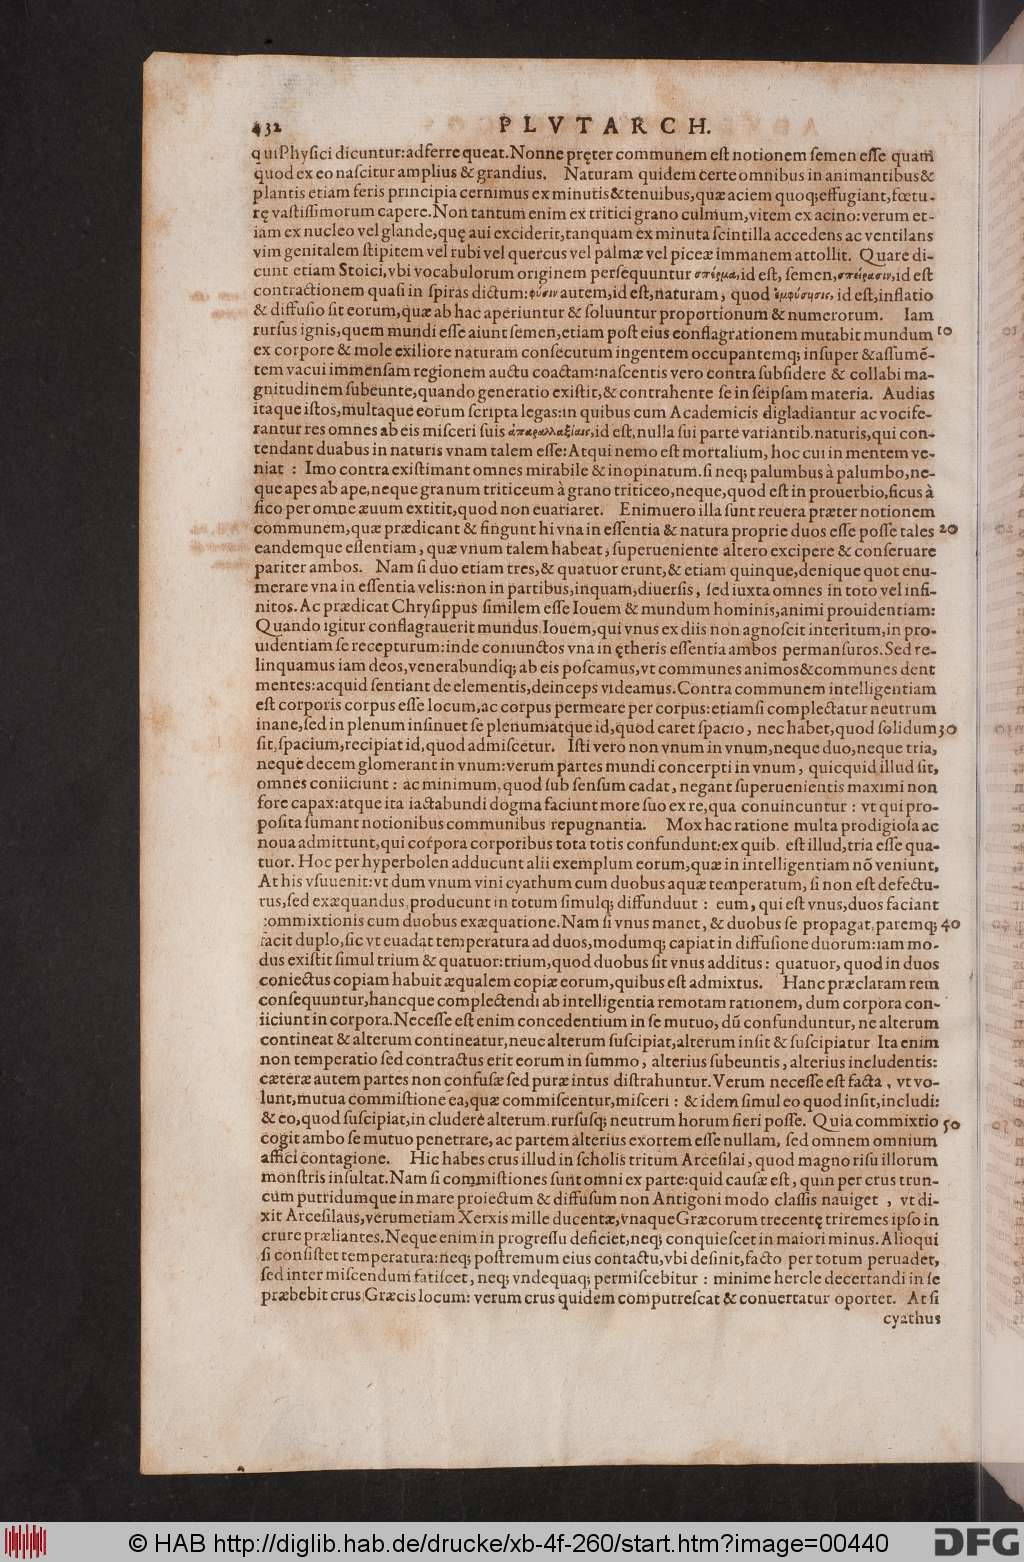 432 PLVTARCH.
qui Physici dicuntur: adferre queat. Nonne pręter communem est notionem semen esse quam
quod ex eo nascitur amplius & grandius. Naturam quidem certe omnibus in animantibus &
plantis etiam feris principia cernimus ex minutis & tenuibus, quæ aciem quoq; effugiant, fœtu-
rę vastissimorum capere. Non tantum enim ex tritici grano culmum, vitem ex acino: verum et-
iam ex nucleo vel glande, quę aui exciderit, tanquam ex minuta scintilla accedens ac ventilans
vim genitalem stipitem vel rubi vel quercus vel palmæ vel piceæ immanem attollit. Quare di-
cunt etiam Stoici, vbi vocabulorum originem persequuntur σπέρμα, id est, semen, σπείρασιν, id est
contractionem quasi in spiras dictum: φύσιν autem, id est, naturam, quod ἐμφύσησις, id est, inflatio
& diffusio sit eorum, quæ ab hac aperiuntur & soluuntur proportionum & numerorum. Iam
rursus ignis, quem mundi esse aiunt semen, etiam post eius conflagrationem mutabit mundum 10
ex corpore & mole exiliore naturam consecutum ingentem occupantemq; insuper & assumē-
tem vacui immensam regionem auctu coactam: nascentis vero contra subsidere & collabi ma-
gnitudinem subeunte, quando generatio existit, & contrahente se in seipsam materia. Audias
itaque istos, multaque eorum scripta legas: in quibus cum Academicis digladiantur ac vocife-
rantur res omnes ab eis misceri suis ἀπαραλλαξίαις, id est, nulla sui parte variantib. naturis, qui con-
tendant duabus in naturis vnam talem esse: Atqui nemo est mortalium, hoc cui in mentem ve-
niat : Imo contra existimant omnes mirabile & inopinatum. si neq; palumbus à palumbo, ne-
que apes ab ape, neque granum triticeum à grano triticeo, neque, quod est in prouerbio, ficus à
fico per omne æuum extitit, quod non euariaret. Enimuero illa sunt reuera præter notionem
communem, quæ prædicant & fingunt hi vna in essentia & natura proprie duos esse posse tales 20
eandemque essentiam, quæ vnum talem habeat, superueniente altero excipere & conseruare
pariter ambos. Nam si duo etiam tres, & quatuor erunt, & etiam quinque, denique quot enu-
merare vna in essentia velis: non in partibus, inquam, diuersis, sed iuxta omnes in toto vel infi-
nitos. Ac prædicat Chrysippus similem esse Iouem & mundum hominis, animi prouidentiam:
Quando igitur conflagrauerit mundus Iouem, qui vnus ex diis non agnoscit interitum, in pro-
uidentiam se recepturum: inde coniunctos vna in ętheris essentia ambos permansuros. Sed re-
linquamus iam deos, venerabundiq; ab eis poscamus, vt communes animos & communes dent
mentes: ac quid sentiant de elementis, deinceps videamus. Contra communem intelligentiam
est corporis corpus esse locum, ac corpus permeare per corpus: etiamsi complectatur neutrum
inane, sed in plenum insinuet se plenum: atque id, quod caret spacio, nec habet, quod solidum 30
sit, spacium, recipiat id, quod admiscetur. Isti vero non vnum in vnum, neque duo, neque tria,
neque decem glomerant in vnum: verum partes mundi concerpti in vnum, quicquid illud sit,
omnes coniiciunt : ac minimum, quod sub sensum cadat, negant superuenientis maximi non
fore capax: atque ita iactabundi dogma faciunt more suo ex re, qua conuincuntur : vt qui pro-
posita sumant notionibus communibus repugnantia. Mox hac ratione multa prodigiosa ac
noua admittunt, qui corpora corporibus tota totis confundunt: ex quib. est illud, tria esse qua-
tuor. Hoc per hyperbolen adducunt alii exemplum eorum, quæ in intelligentiam nō veniunt.
At his vsuuenit: vt dum vnum vini cyathum cum duobus aquæ temperatum, si non est defectu-
rus, sed exæquandus producunt in totum simulq; diffunduut : eum, qui est vnus, duos faciant
commixtionis cum duobus exæquatione. Nam si vnus manet, & duobus se propagat, paremq; 40
facit duplo, sic vt euadat temperatura ad duos, modumq; capiat in diffusione duorum: iam mo-
dus existit simul trium & quatuor: trium, quod duobus sit vnus additus : quatuor, quod in duos
coniectus copiam habuit æqualem copiæ eorum, quibus est admixtus. Hanc præclaram rem
consequuntur, hancque complectendi ab intelligentia remotam rationem, dum corpora con-
iiciunt in corpora. Necesse est enim concedentium in se mutuo, dū confunduntur, ne alterum
contineat & alterum contineatur, neue alterum suscipiat, alterum insit & suscipiatur Ita enim
non temperatio sed contractus erit eorum in summo, alterius subeuntis, alterius includentis:
cæteræ autem partes non confusæ sed puræ intus distrahuntur. Verum necesse est facta, vt vo-
lunt, mutua commistione ea, quæ commiscentur, misceri : & idem simul eo quod insit, includi:
& eo, quod suscipiat, includere alterum. rursusq; neutrum horum fieri posse. Quia commixtio 50
cogit ambo se mutuo penetrare, ac partem alterius exortem esse nullam, sed omnem omnium
affici contagione. Hic habes crus illud in scholis tritum Arcesilai, quod magno risu illorum
monstris insultat. Nam si commistiones sunt omni ex parte: quid causæ est, quin per crus trun-
cum putridumque in mare proiectum & diffusum non Antigoni modo classis nauiget , vt di-
xit Arcesilaus, verumetiam Xerxis mille ducentæ, vnaque Græcorum trecentę triremes ipso in
crure præliantes. Neque enim in progressu deficiet, neq; conquiescet in maiori minus. Alioqui
si consistet temperatura: neq; postremum eius contactu, vbi desinit, facto per totum peruadet,
sed inter miscendum fatiscet, neq; vndequaq; permiscebitur : minime hercle decertandi in se
præbebit crus Græcis locum: verum crus quidem computrescat & conuertatur oportet. At si
cyathus
© HAB http://diglib.hab.de/drucke/xb-4f-260/start.htm?image=00440
DFG